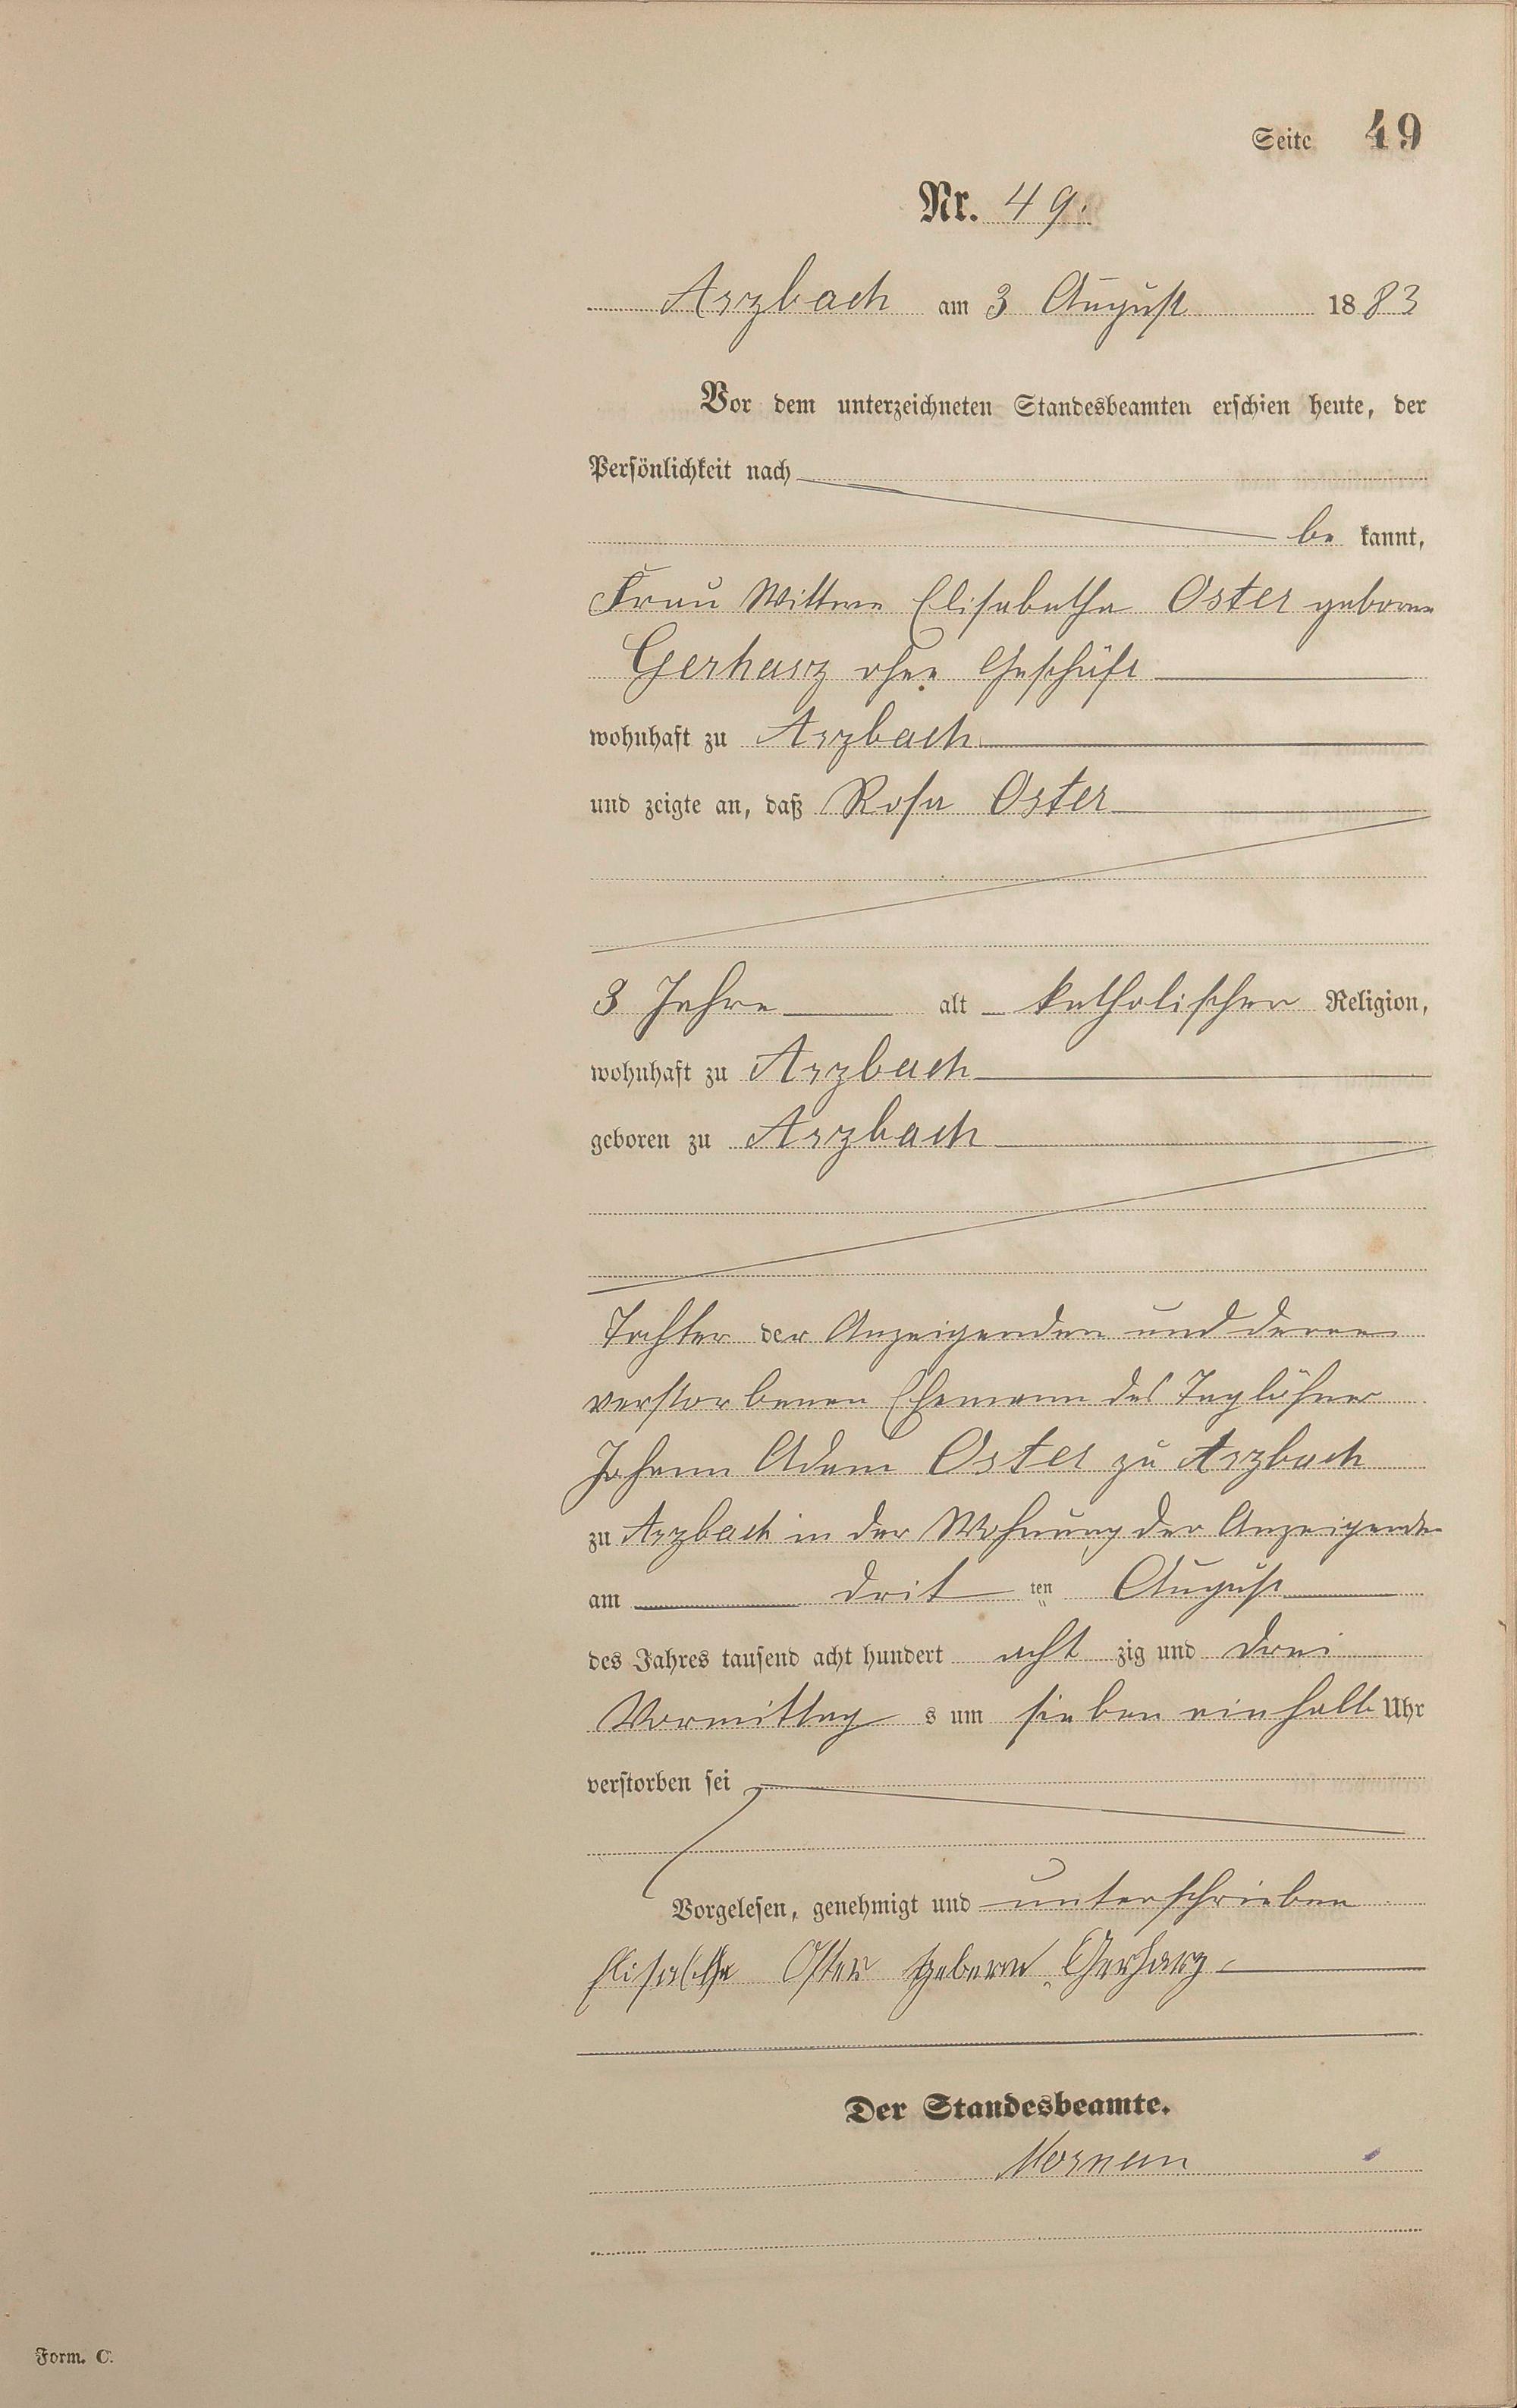 Seite 49
Nr. 49.
Arzbach am 3 August 1883
Vor dem unterzeichneten Standesbeamten erschien heute, der
Persönlichkeit nach
be kannt,
Frau Wittwe Elisabetha Oster geborene
Gerharz ohne Geschäft
wohnhaft zu Arzbach
und zeigte an, daß Rosa Oster
3 Jahre alt katholischer Religion,
wohnhaft zu Arzbach
geboren zu Arzbach
Tochter der Anzeigenden und deren
verstorbenen Ehemann des Taglöhner
Johann Adam Oster zu Arzbach
zu Arzbach in der Wohnung der Anzeigende
am drit ten August
des Jahres tausend acht hundert acht zig und drei
Vormittag s um sieben ein halb Uhr
verstorben sei
Vorgelesen, genehmigt und unterschrieben
Oster Gerharz
Der Standesbeamte.
Form. C.